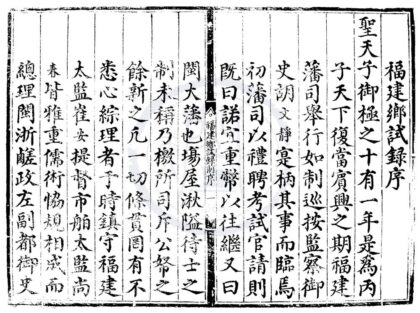 福建鄉試録序
聖天子御極之十有一年是爲丙
子天下復當賓興之期福建
藩司舉行如制巡按監察御
史胡文靜寔柄其事而臨焉
初藩司以禮聘考試官請則
既曰諾重幣以往繼又曰
閩大藩也塲屋湫隘待士之
制未稱乃檄所司斥公帑之
餘新之凡一切條貫罔有不
悉心綜理者于時鎮守福建
太監崔安提督市舶太監尚
春皆雅重儒術恊規相成而
總理閩浙鹺政左副都御史